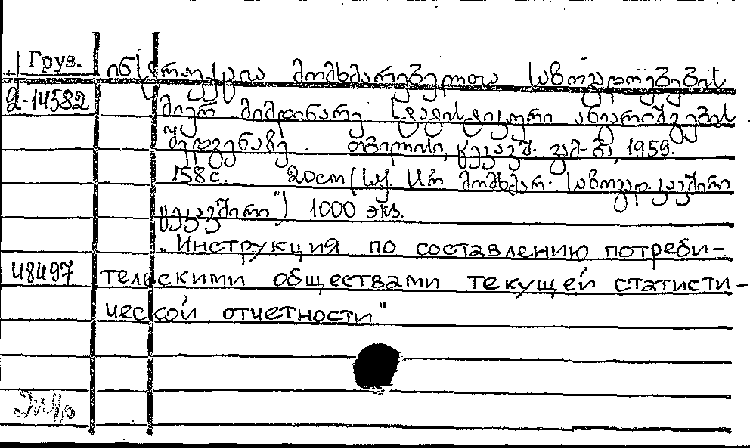 Груз. ინსტრუქცია მომხმარებელთა საზოგადოებების
მიერ მიმდინარე სტატისტიკური ანგარიშგების
შედგენაზე. თბილისი, 1959.
158с. 20см (საქ. სსრ მომხმარ. საზოგად. კავშირი
1000 экз.
„Инструкция по составлению потреби-
48497 тельскими обществами текущей статисти-
ческой отчетности"